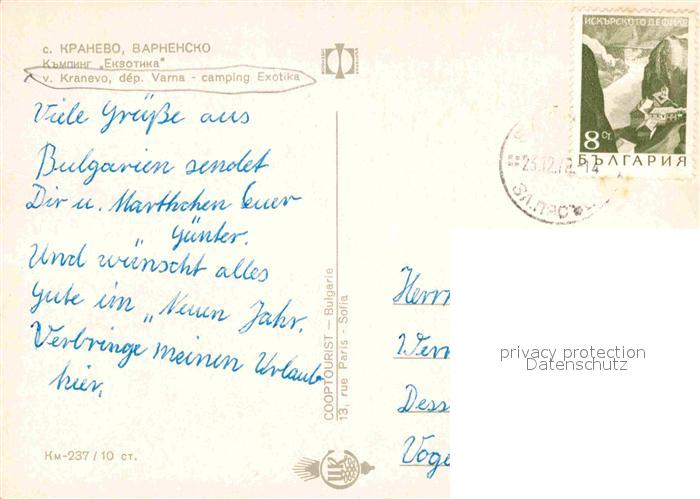 с. КРАНЕВО, ВАРНЕНСКО
Къмпинг „Екзотика"
v. Kranevo, dép. Varna - camping Exotika
Viele Grüße aus
Bulgarien sendet
Dir u. Marthchen Euer
Günter.
Und wünscht alles
Gute im „Neuen Jahr.
Verbringe meinen Urlaub
hier.
Км-237 / 10 ст.
COOPTOURIST — Bulgarie
13, rue Paris - Sofia
ИСКЪРСКОТО ДЕФИЛЕ
8 СТ.
БЪЛГАРИЯ
23.12.
Herrn
Wern
Dess
Voge
privacy protection
Datenschutz